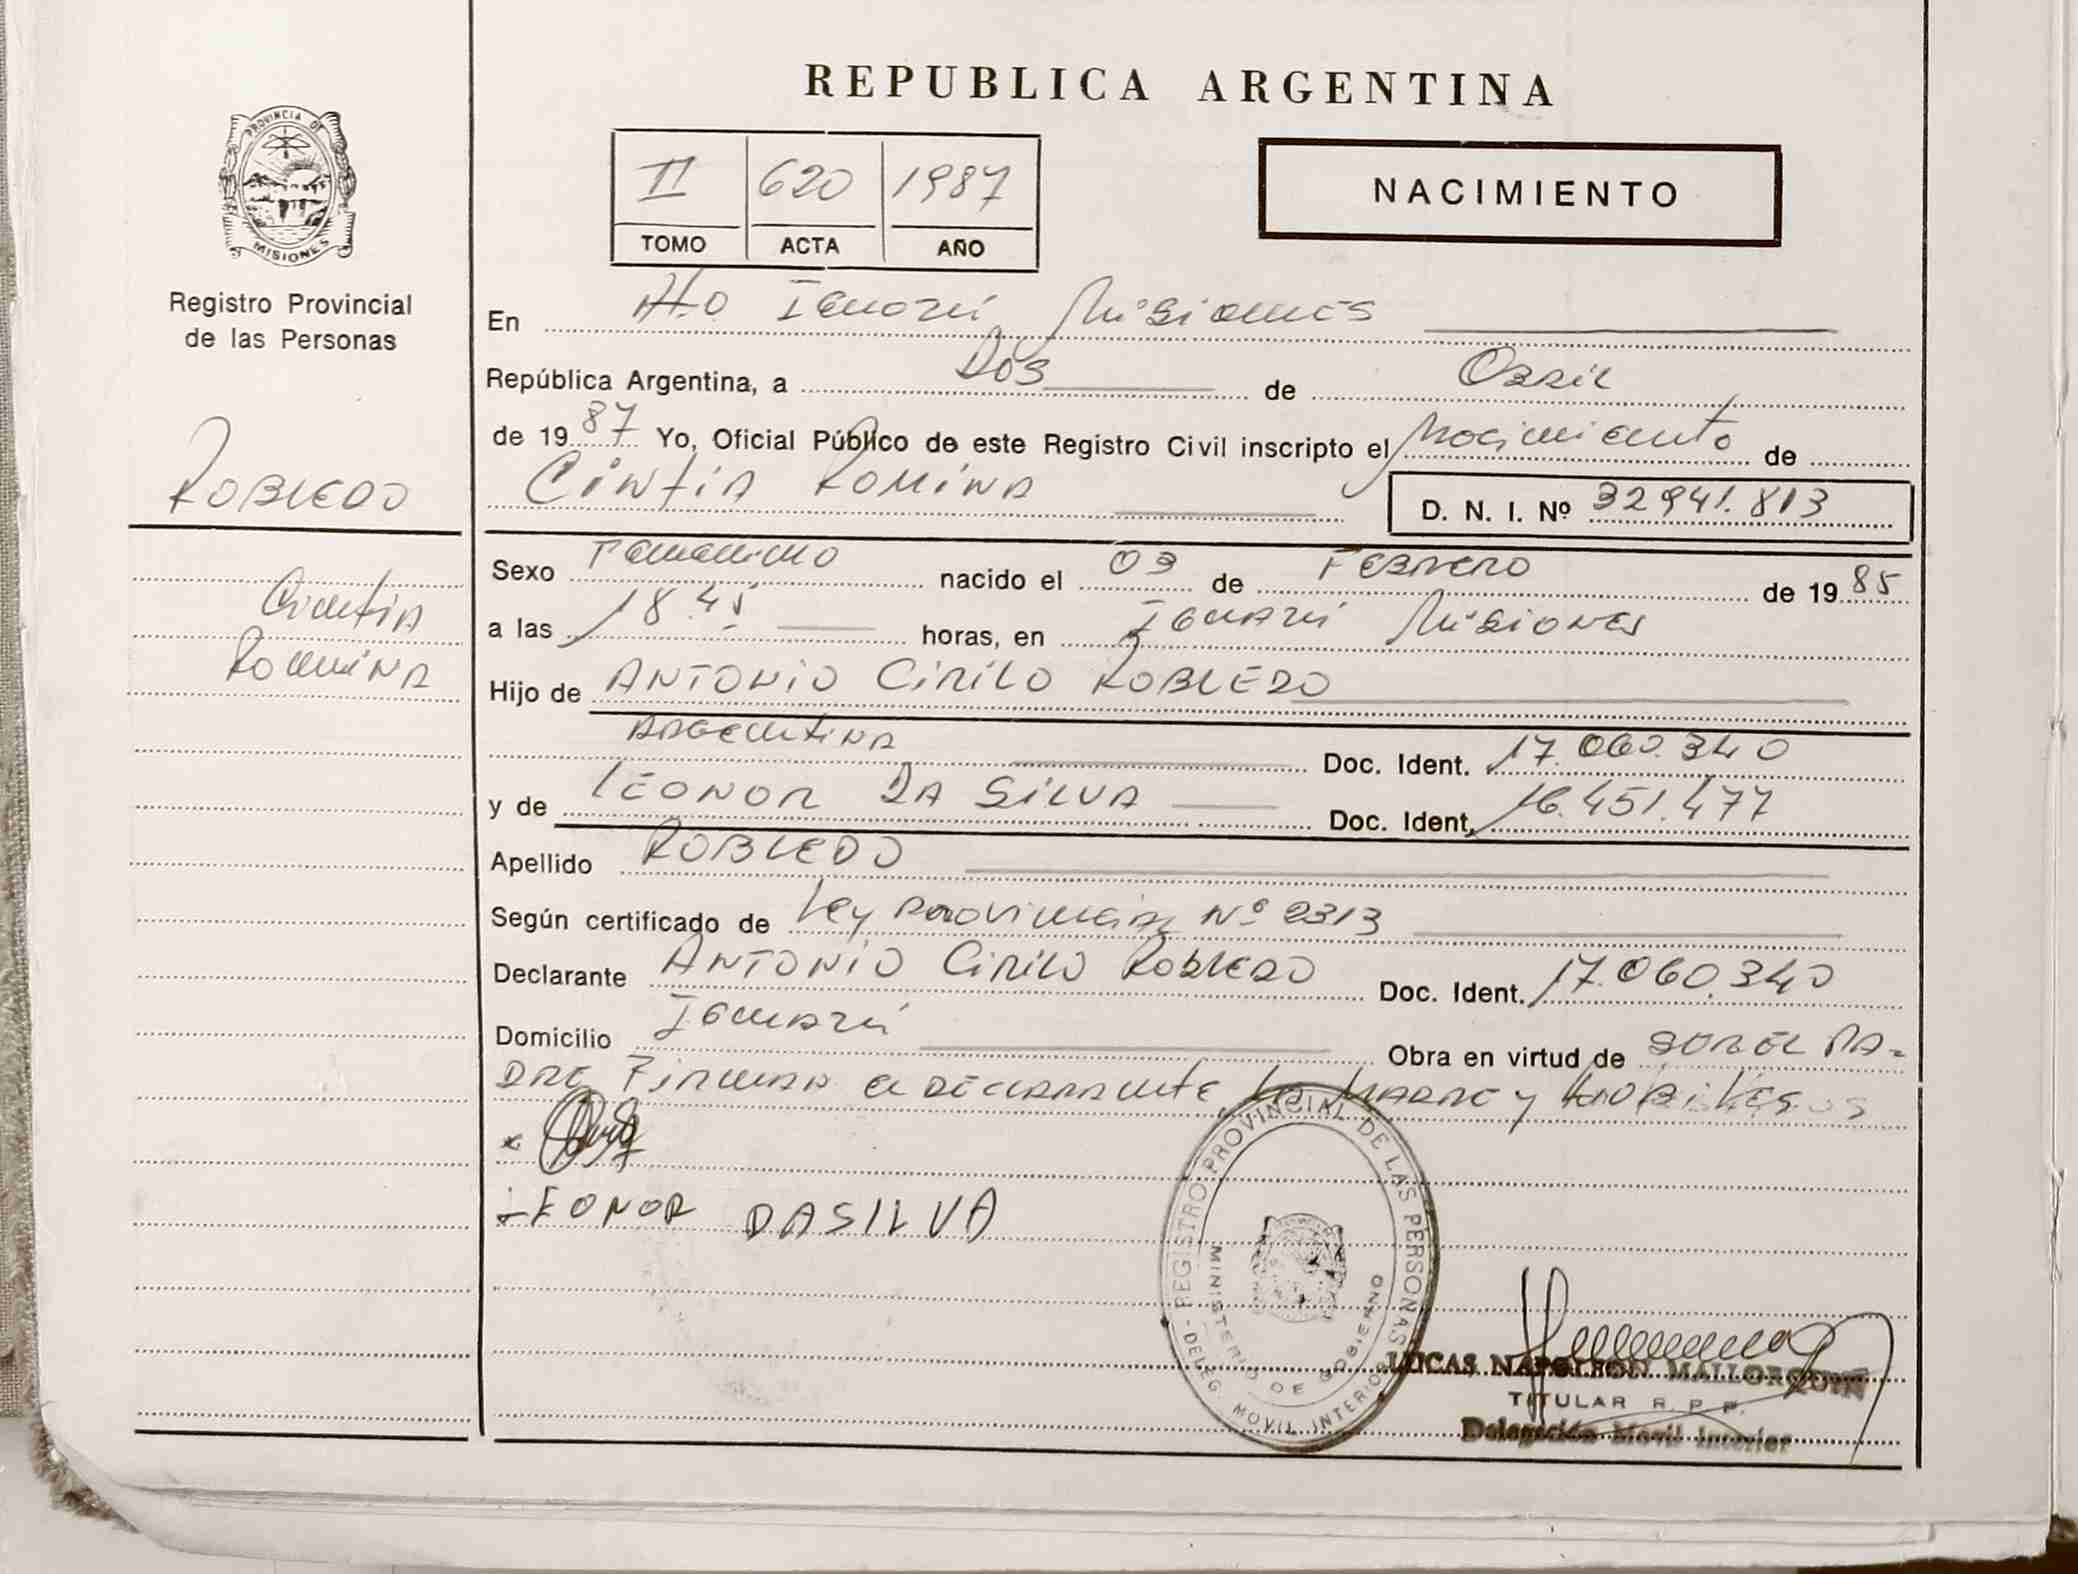 REPUBLICA ARGENTINA
PROVINCIA DE
MISIONES
Registro Provincial
de las Personas
II 620 1987
TOMO ACTA AÑO
NACIMIENTO
ROBLEDO
Cintia
Romina
En Pto Iguazú Misiones
República Argentina, a Dos de Abril
de 1987 Yo, Oficial Público de este Registro Civil inscripto el Nacimiento de
Cintia Romina D. N. I. Nº 32941.813
Sexo Femenino nacido el 03 de Febrero de 1985
a las 18.45 horas, en Iguazú Misiones
Hijo de ANTONIO CIRILO ROBLEDO
Argentina Doc. Ident. 17.060.340
y de LEONOR DA SILVA Doc. Ident. 16.451.477
Apellido ROBLEDO
Según certificado de Ley Provincial Nº 2313
Declarante ANTONIO CIRILO ROBLEDO Doc. Ident. 17.060.340
Domicilio Iguazú Obra en virtud de SER EL PA-
DRE Firman el DECLARANTE, la MADRE y
LEONOR DASILVA
REGISTRO PROVINCIAL DE LAS PERSONAS
- DELEG. MOVIL INTERIOR
MINISTERIO DE GOBIERNO
LUCAS NAPOLEON MALLORQUIN
TITULAR R. P. P.
Delegación Movil Interior